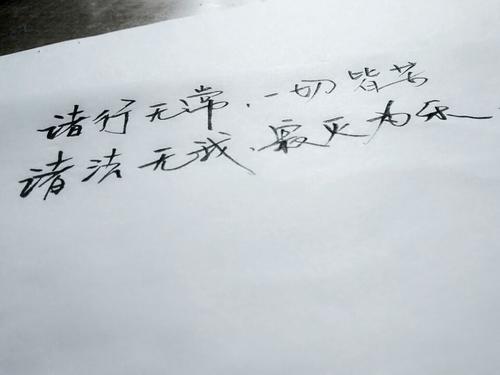 诸行无常,一切皆苦
诸法无我,寂灭为乐